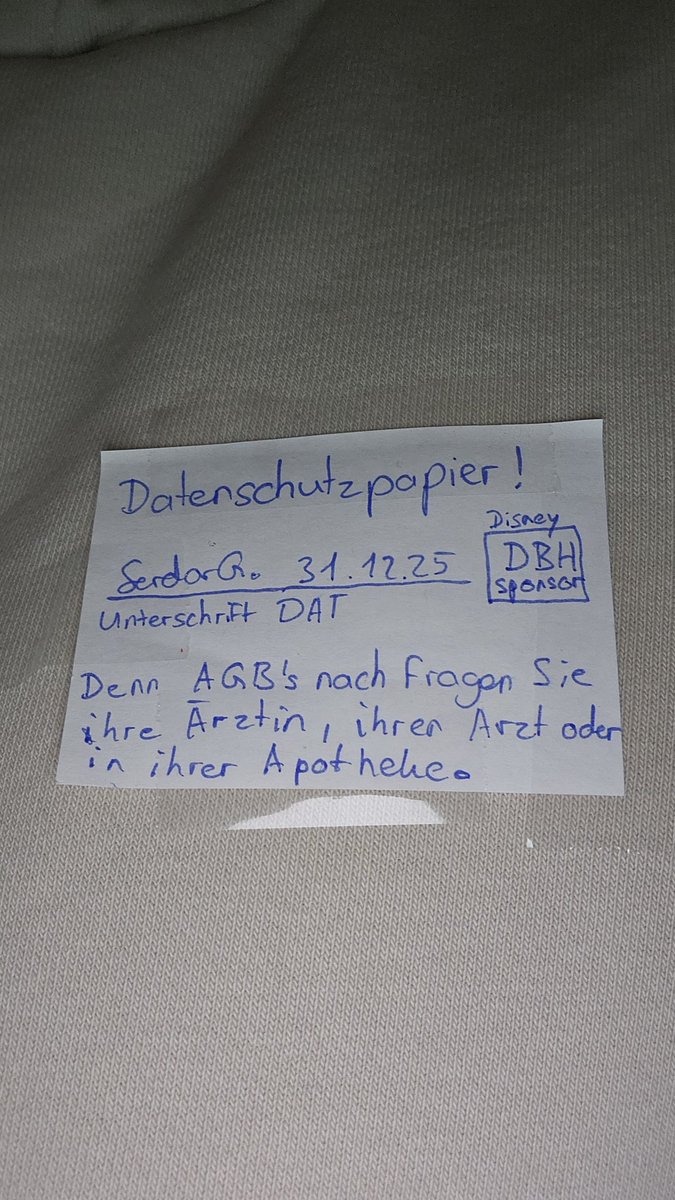 Datenschutzpapier!
Disney
SerdarG. 31.12.25
DBH
sponsort
Unterschrift DAT
Denn AGB's nach Fragen Sie
ihre Ärztin, ihren Arzt oder
in ihrer Apotheke.